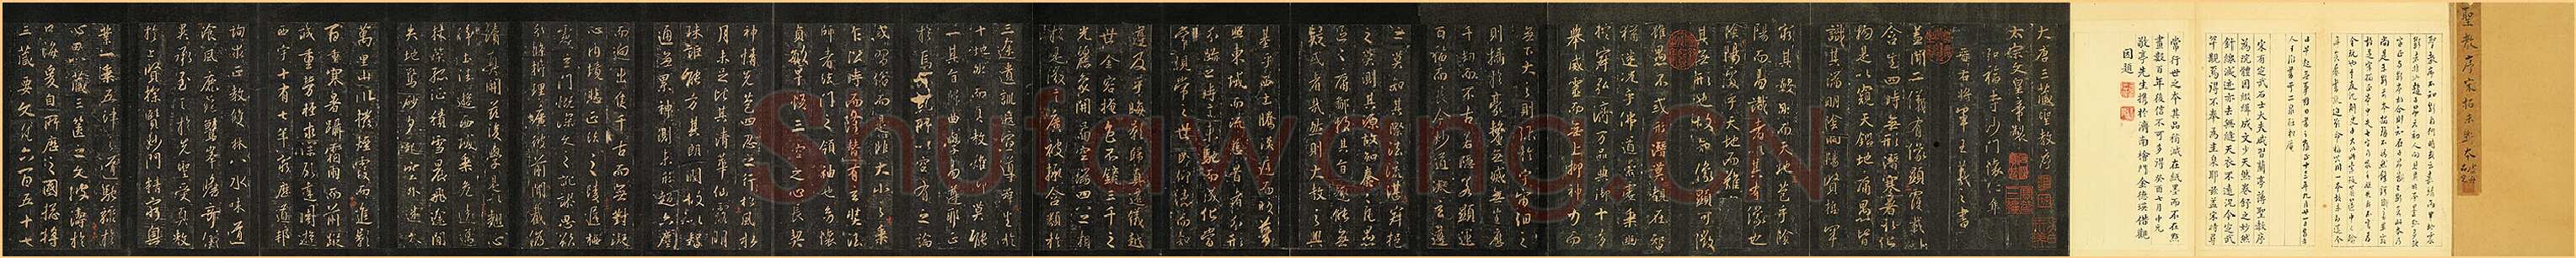 聖教序宋拓未斷本
宋有定武石士大夫咸習蘭亭薄聖教序
為院體因綴緝成文少天然卷舒之妙然
針線滅迹亦去無縫天衣不遠況今定武
罕覯焉得不奉為圭臬耶該盖宋時尋
常行世之本其品猶減在紙墨而不在點
畫數百年後信不可多得癸酉七月中元
敬亭先生攜於濟南檜門金德瑛借觀
因題
大唐三藏聖教序
太宗文皇帝製
弘福寺沙門懷仁集
晉右將軍王羲之書
蓋聞二儀有像顯覆載以
含生四時無形潛寒暑以化
物是以窺天鑑地庸愚皆
識其端明陰洞陽賢哲罕
窮其數然而天地苞乎陰
陽而易識者以其有像也
陰陽處乎天地而難窮者以
其無形也故知像顯可徵
雖愚不惑形潛莫覩在智
猶迷況乎佛道崇虛乘幽
控寂弘濟萬品典御十方
舉威靈而無上抑神力而
無下大之則彌於宇宙細之
則攝於毫釐無滅無生歷
千劫而不古若隱若顯運
百福而長今妙道凝玄遵
之莫知其際法流湛寂挹
之莫測其源故知蠢蠢凡愚
區區庸鄙投其旨趣能無
疑惑者哉然則大教之興
基乎西土騰漢庭而皎夢
照東域而流慈昔者分形
分跡之時言未馳而成化當
常現常之世民仰德而知
遵及乎晦影歸真遷儀越
世金容掩色不鏡三千之
光麗象開圖空端四八之相
於是微言廣被拯含類於
三途遺訓遐宣導群生於
十地然而真教難仰莫能
一其旨歸曲學易遵耶正
於焉紛糺所以空有之論
或習俗而是非大小之乘
乍沿時而隆替有玄奘法
師者法門之領袖也幼懷
貞敏早悟三空之心長契
神情先苞四忍之行松風水
月未足比其清華仙露明
珠詎能方其朗潤故以智
通無累神測未形超六塵
而迥出隻千古而無對凝
心內境悲正法之陵遲栖
慮玄門慨深文之訛謬思欲
分條析理廣彼前聞截偽
續真開茲後學是以翹心
淨土法遊西域乘危遠邁
杖策孤征積雪晨飛途間
失地驚砂夕起空外迷天
萬里山川撥煙霞而進影
百重寒暑躡霜雨而前蹤
誠重勞輕求深願達周遊
西宇十有七年窮歷道邦
詢求正教雙林八水味道
飡風鹿苑鷲峯瞻奇仰
異承至言於先聖受真教
於上賢探賾妙門精窮奧
業一乘五律之道馳驟於
心田八藏三篋之文波濤於
口海爰自所歷之國總將
三藏要文凡六百五十七
Shufawang.CN